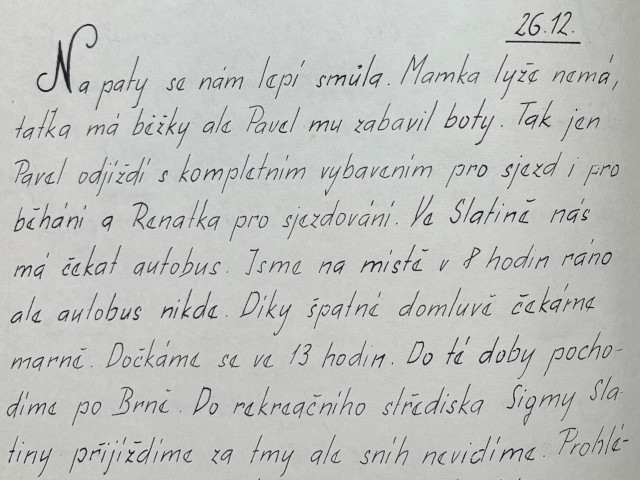 26.12.
Na paty se nám lepí smůla. Mamka lyže nemá,
taťka má běžky ale Pavel mu zabavil boty. Tak jen
Pavel odjíždí s kompletním vybavením pro sjezd i pro
běhání a Renatka pro sjezdování. Ve Slatině nás
má čekat autobus. Jsme na místě v 8 hodin ráno
ale autobus nikde. Díky špatné domluvě čekáme
marně. Dočkáme se ve 13 hodin. Do té doby pocho-
díme po Brně. Do rekreačního střediska Sigmy Sla-
tiny přijíždíme za tmy ale sníh nevidíme. Prohlé-